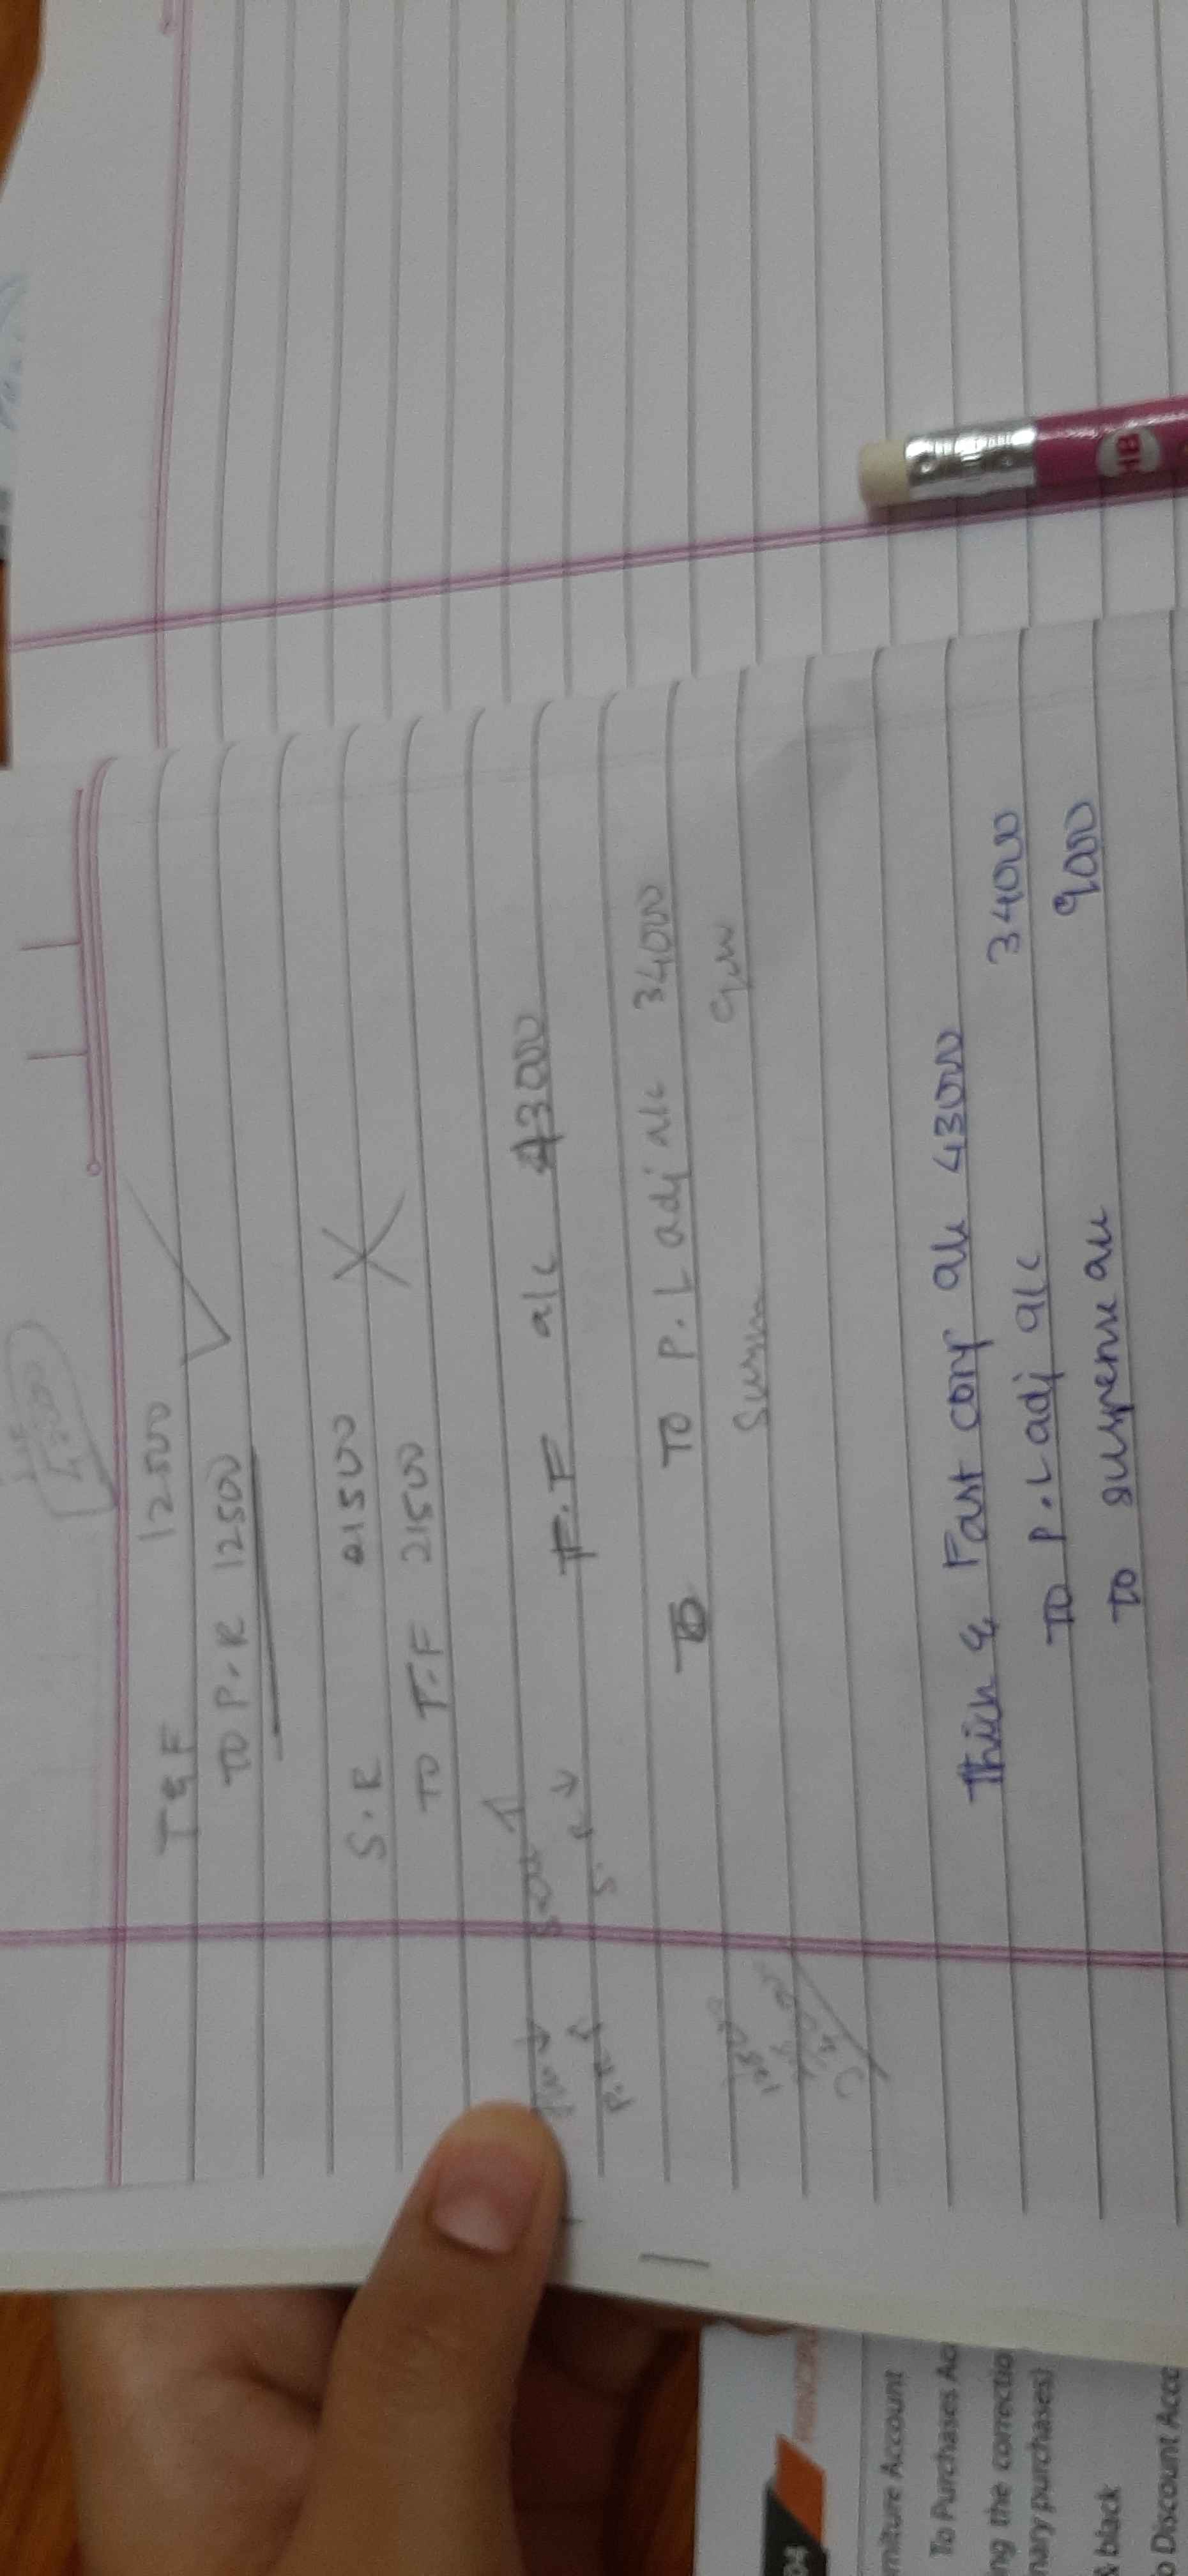 43000
T & F 12500
TO P.R 12500
S.R 21500
TO T.F 21500
P.R
S.R
T.F a/c 43000
TO TO P.L adj a/c 34000
Thick & Fast cory a/c 43000
TO P.L adj a/c 34000
TO suspense a/c 9000
HB
04
niture Account
To Purchases Ac
ng the correctio
nary purchases)
black
o Discount Acco